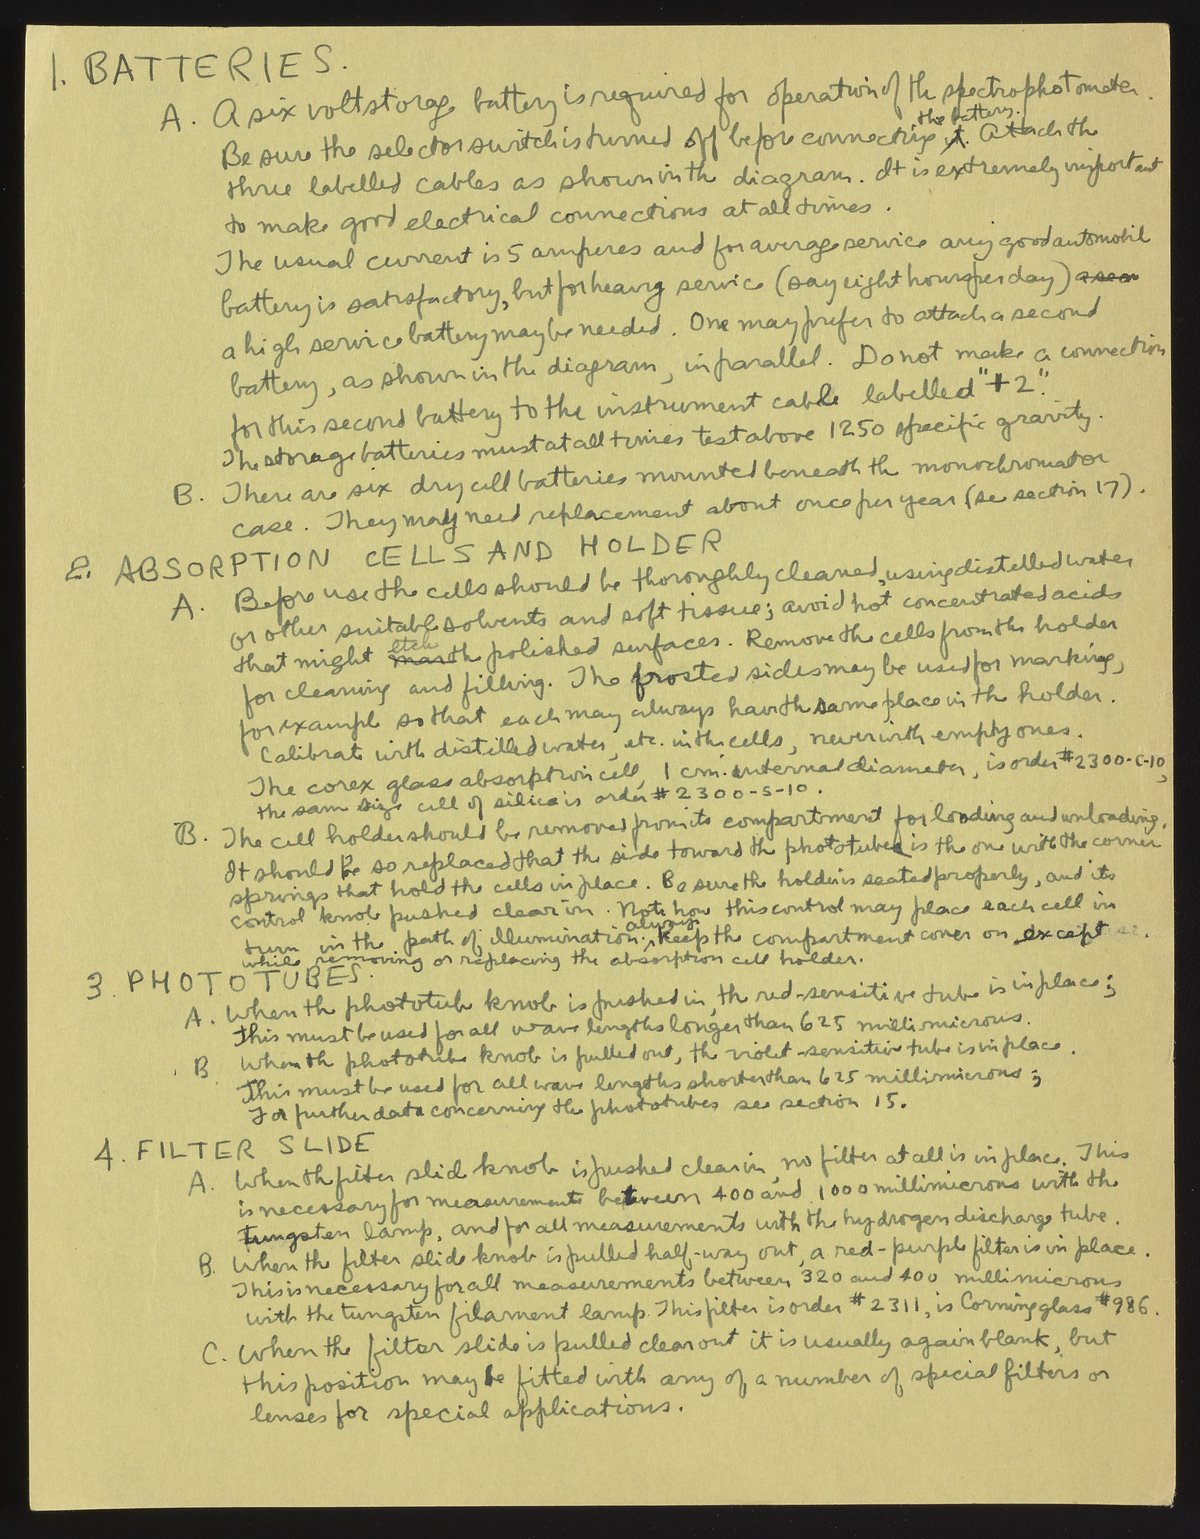 1. BATTERIES.
A. A six volt storage battery is required for operation of the spectrophotometer.
Be sure the selector switch is turned off before connecting it the battery. Attach the
three labelled cables as shown in the diagram. It is extremely important
to make good electrical connections at all times.
The usual current is 5 amperes and for average service any good automobile
battery is satisfactory, but for heavy service (say eight hours per day)
a high service battery may be needed. One may prefer to attach a second
battery, as shown in the diagram, in parallel. Do not make a connection
for this second battery to the instrument cable labelled "+2".
The storage batteries must at all times test above 1250 specific gravity.
B. There are six dry cell batteries mounted beneath the monochromator
case. They may need replacement about once per year (see section 17).
2. ABSORPTION CELLS AND HOLDER
A. Before use the cells should be thoroughly cleaned, using distilled water
or other suitable solvents and soft tissue; avoid hot concentrated acids
that might mar etch the polished surfaces. Remove the cells from the holder
for cleaning and filling. The frosted sides may be used for marking,
for example so that each may always have the same place in the holder.
Calibrate with distilled water, etc. in the cells, never with empty ones.
The corex glass absorption cell, 1 cm. internal diameter, is order #2300-C-10,
the same size cell of silica is order #2300-S-10.
B. The cell holder should be removed from its compartment for loading and unloading.
It should be so replaced that the side toward the phototube is the one with the corner
springs that hold the cells in place. Be sure the holder is seated properly, and its
control knob pushed clear in. Note how this control may place each cell in
turn in the path of illumination; always keep the compartment cover on except
while removing or replacing the absorption cell holder.
3. PHOTOTUBES.
A. When the phototube knob is pushed in, the red-sensitive tube is in place;
this must be used for all wave lengths longer than 625 millimicrons.
B When the phototube knob is pulled out, the violet-sensitive tube is in place.
This must be used for all wave lengths shorter than 625 millimicrons;
For further data concerning the phototubes see section 15.
4. FILTER SLIDE
A. When the filter slide knob is pushed clear in, no filter at all is in place. This
is necessary for measurements between 400 and 1000 millimicrons with the
tungsten lamp, and for all measurements with the hydrogen discharge tube.
B. When the filter slide knob is pulled half-way out, a red-purple filter is in place.
This is necessary for all measurements between 320 and 400 millimicrons
with the tungsten filament lamp. This filter is order #2311, is Corning glass #986.
C. When the filter slide is pulled clear out it is usually again blank, but
this position may be fitted with any of a number of special filters or
lenses for special applications.